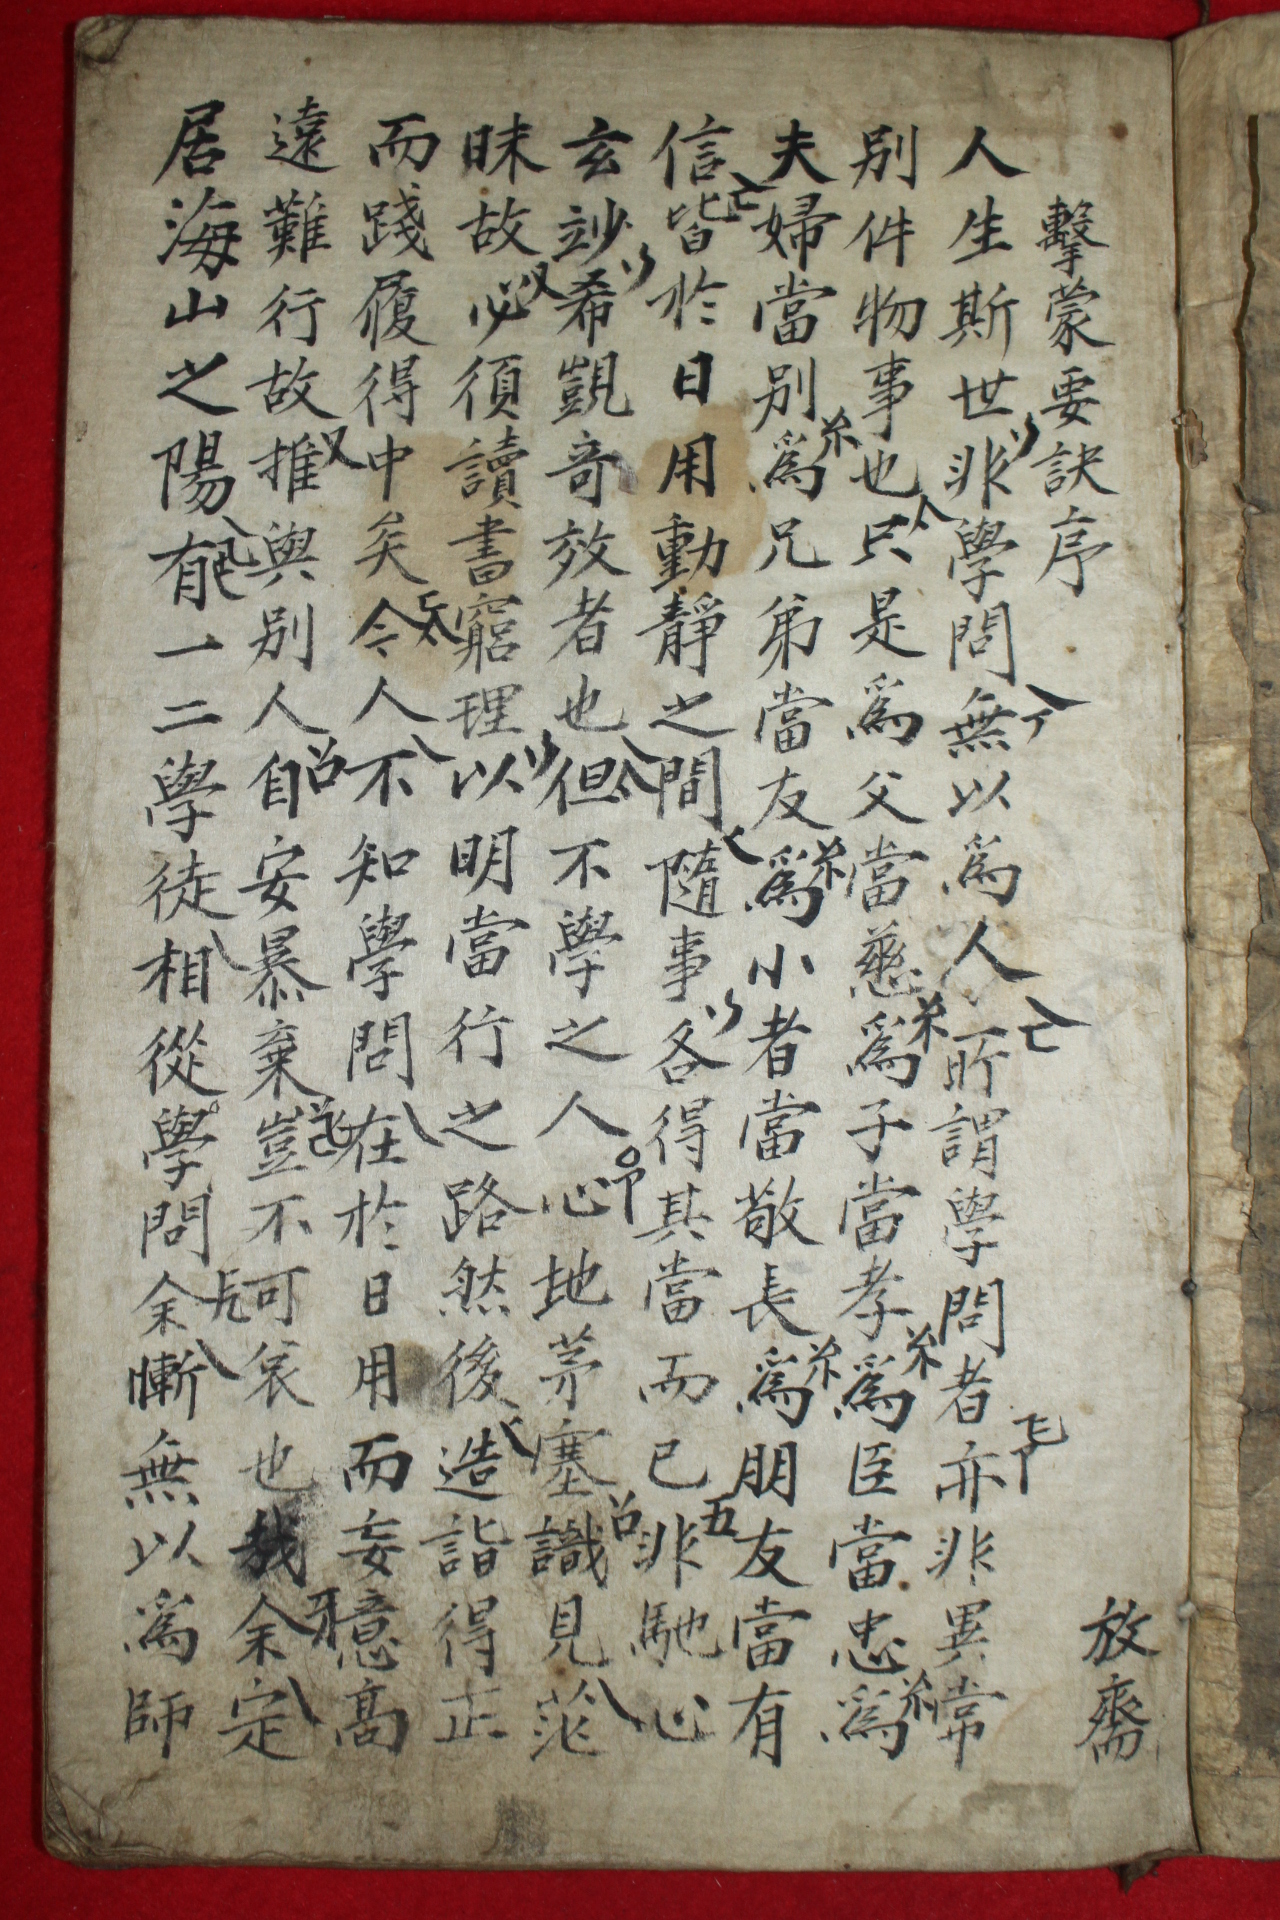 放齋
擊蒙要訣序
人生斯世非學問無以爲人所謂學問者亦非異常
別件物事也只是爲父當慈爲子當孝爲臣當忠爲
夫婦當別爲兄弟當友爲小者當敬長爲朋友當有
信皆於日用動靜之間隨事各得其當而已非馳心
玄竗希覬奇效者也但不學之人心地茅塞識見茫
昧故必須讀書窮理以明當行之路然後造詣得正
而踐履得中矣今人不知學問在於日用而妄意高
遠難行故推與別人自安暴棄豈不可哀也哉余定
居海山之陽有一二學徒相從學問余慚無以爲師